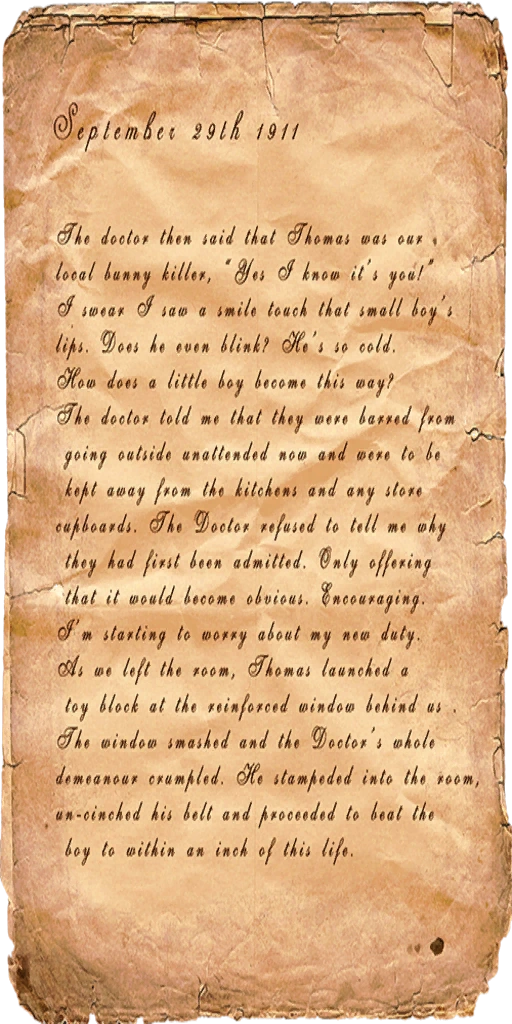 September 29th 1911
The doctor then said that Thomas was our
local bunny killer, "Yes I know it's you!"
I swear I saw a smile touch that small boy's
lips. Does he even blink? He's so cold.
How does a little boy become this way?
The doctor told me that they were barred from
going outside unattended now and were to be
kept away from the kitchens and any store
cupboards. The Doctor refused to tell me why
they had first been admitted. Only offering
that it would become obvious. Encouraging.
I'm starting to worry about my new duty.
As we left the room, Thomas launched a
toy block at the reinforced window behind us .
The window smashed and the Doctor's whole
demeanour crumpled. He stampeded into the room,
un-cinched his belt and proceeded to beat the
boy to within an inch of this life.